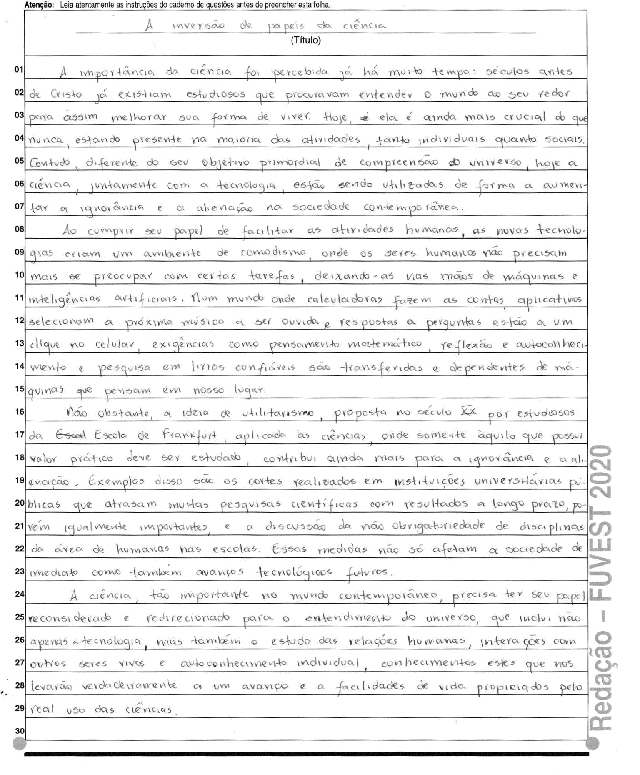 Atenção: Leia atentamente as instruções do caderno de questões antes de preencher esta folha.
A inversão de papeis da ciência
(Título)
01 A importância da ciência foi percebida já há muito tempo: séculos antes
02 de Cristo já existiam estudiosos que procuravam entender o mundo ao seu redor
03 para assim melhorar sua forma de viver. Hoje, ela é ainda mais crucial do que
04 nunca, estando presente na maioria das atividades, tanto individuais quanto sociais.
05 Contudo, diferente do seu objetivo primordial de compreensão do universo, hoje a
06 ciência, juntamente com a tecnologia, estão sendo utilizadas de forma a aumen-
07 tar a ignorância e a alienação na sociedade contemporânea.
08 Ao cumprir seu papel de facilitar as atividades humanas, as novas tecnolo-
09 gias criam um ambiente de comodismo, onde os seres humanos não precisam
10 mais se preocupar com certas tarefas, deixando-as nas mãos de máquinas e
11 inteligências artificiais. Num mundo onde calculadoras fazem as contas, aplicativos
12 selecionam a próxima música a ser ouvida e respostas a perguntas estão a um
13 clique no celular, exigências como pensamento matemático, reflexão e autoconheci-
14 mento e pesquisa em livros confiáveis são transferidas e dependentes de má-
15 quinas que pensam em nosso lugar.
16 Não obstante, a ideia de utilitarismo, proposta no século XX por estudiosos
17 da Escola de Frankfurt, aplicada às ciências, onde somente àquilo que possui
18 valor prático deve ser estudado, contribui ainda mais para a ignorância e a ali-
19 enação. Exemplos disso são os cortes realizados em instituições universitárias pú-
20 blicas que atrasam muitas pesquisas científicas com resultados a longo prazo, po-
21 rém igualmente importantes, e a discussão da não obrigatoriedade de disciplinas
22 da área de humanas nas escolas. Essas medidas não só afetam a sociedade de
23 imediato como também avanços tecnológicos futuros.
24 A ciência, tão importante no mundo contemporâneo, precisa ter seu papel
25 reconsiderado e redirecionado para o entendimento do universo, que inclui não
26 apenas a tecnologia, mais também o estudo das relações humanas, interações com
27 outros seres vivos e autoconhecimento individual, conhecimentos estes que nos
28 levarão verdadeiramente a um avanço e a facilidades de vida propiciados pelo
29 real uso das ciências.
30
Redação – FUVEST 2020